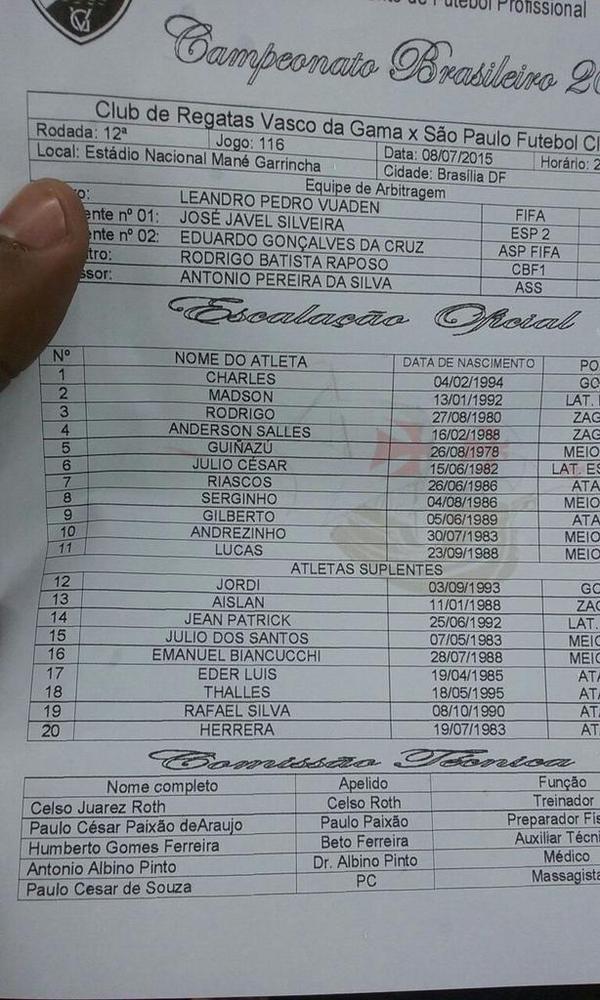 de Futebol Profissional
Campeonato Brasileiro 20
Club de Regatas Vasco da Gama x São Paulo Futebol Cl
Rodada: 12ª Jogo: 116 Data: 08/07/2015 Horário: 2
Local: Estádio Nacional Mané Garrincha Cidade: Brasília DF
Equipe de Arbitragem
ro: LEANDRO PEDRO VUADEN FIFA
ente nº 01: JOSÉ JAVEL SILVEIRA ESP 2
ente nº 02: EDUARDO GONÇALVES DA CRUZ ASP FIFA
itro: RODRIGO BATISTA RAPOSO CBF1
ssor: ANTONIO PEREIRA DA SILVA ASS
Escalação Oficial
Nº NOME DO ATLETA DATA DE NASCIMENTO PO
1 CHARLES 04/02/1994 GO
2 MADSON 13/01/1992 LAT.
3 RODRIGO 27/08/1980 ZAG
4 ANDERSON SALLES 16/02/1988 ZAG
5 GUIÑAZÚ 26/08/1978 MEIO
6 JULIO CÉSAR 15/06/1982 LAT. ES
7 RIASCOS 26/06/1986 ATA
8 SERGINHO 04/08/1986 MEIO
9 GILBERTO 05/06/1989 ATA
10 ANDREZINHO 30/07/1983 MEIO
11 LUCAS 23/09/1988 MEIO
ATLETAS SUPLENTES
12 JORDI 03/09/1993 GO
13 AISLAN 11/01/1988 ZAG
14 JEAN PATRICK 25/06/1992 LAT.
15 JULIO DOS SANTOS 07/05/1983 MEIO
16 EMANUEL BIANCUCCHI 28/07/1988 MEIO
17 EDER LUIS 19/04/1985 ATA
18 THALLES 18/05/1995 ATA
19 RAFAEL SILVA 08/10/1990 ATA
20 HERRERA 19/07/1983 ATA
Comissão Técnica
Nome completo Apelido Função
Celso Juarez Roth Celso Roth Treinador
Paulo César Paixão deAraujo Paulo Paixão Preparador Fís
Humberto Gomes Ferreira Beto Ferreira Auxiliar Técni
Antonio Albino Pinto Dr. Albino Pinto Médico
Paulo Cesar de Souza PC Massagista